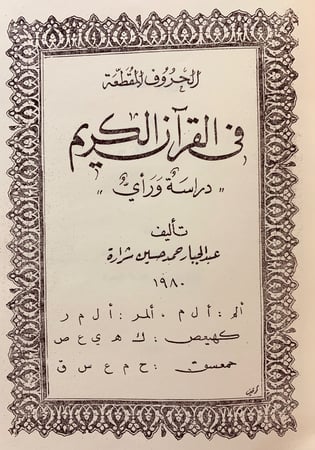 الحروف المقطعة
في القرآن الكريم
" دراسة ورأي "
تأليف
عبد الجبار حمد حسين شرارة
١٩٨٠
الم : ا ل م . المر : ا ل م ر
كهيعص : ك ه ي ع ص
حمعسق : ح م ع س ق